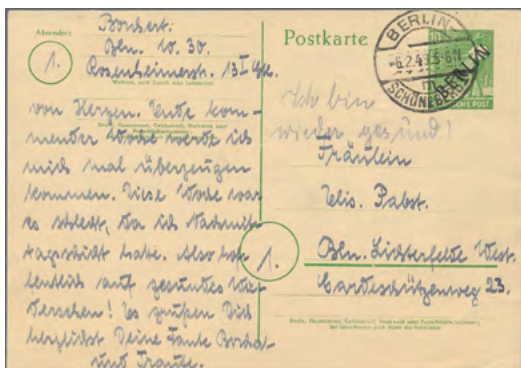 Absender:
Borchert.
Bln. W. 30.
Rosenheimerstr. 13 I
1.
von Herzen. Ende kom-
mender Woche werde ich
mich mal überzeugen
kommen. Diese Woche war
es schlecht, da ich Nachmit-
tagsschicht hatte. Also hof-
fentlich auf gesundes Wie-
dersehen! Es grüßen Dich
herzlichst Deine Tante
und Traute.
Postkarte
BERLIN
-6.2.49.5-6N
SCHÖNEBERG
BERLIN
DEUTSCHE POST
Ich bin
wieder gesund!
Fräulein
Elis. Pabst.
1.
Bln. Lichterfelde West.
Gardeschützenweg 23.